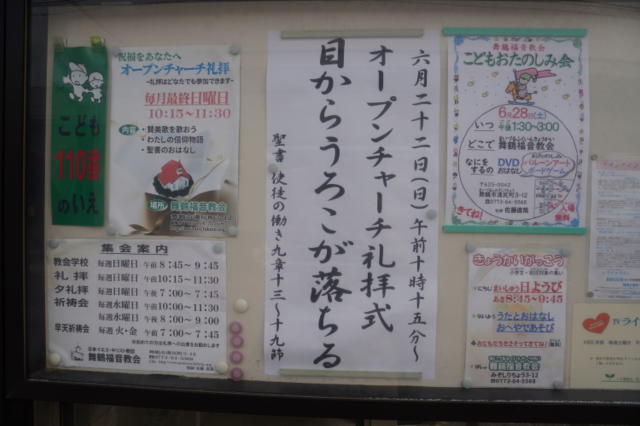 こども
110番
のいえ
祝福をあなたへ
オープンチャーチ礼拝
-礼拝はどなたでも参加できます-
毎月最終日曜日
10:15~11:30
内容
・賛美歌を歌おう
・わたしの信仰物語
・聖書のおはなし
場所
舞鶴福音教会
六月二十二日(日)午前十時十五分~
オープンチャーチ礼拝式
目からうろこが落ちる
聖書 使徒の働き九章十三~十九節
舞鶴福音教会
こどもおたのしみ会
6月28日(土)
いつ
午後1:30~3:00
どこで
舞鶴福音教会
なにを
するの
DVD
おはなし
バルーンアート
ボードゲーム
〒625-0062
☎0773-64-5568
牧師 佐藤直哉
きてね!
入場
無料
集会案内
教会学校 毎週日曜日 午前 8:45~9:45
礼拝 毎週日曜日 午前10:15~11:30
夕礼拝 毎週日曜日 午後 7:00~7:45
祈祷会 毎週水曜日 午前10:00~11:30
毎週水曜日 午後 8:00~9:00
早天祈祷会 毎週火・金 午前 7:00~7:45
日本イエス・キリスト教団
舞鶴福音教会
きょうかいがっこう
まいしゅう日ようび
あさ8:45~9:45
うたとおはなし
おへやであそび
おともだちをさそってきてね!
舞鶴福音教会
みぞしりちょう3-12
☎0773-64-5568